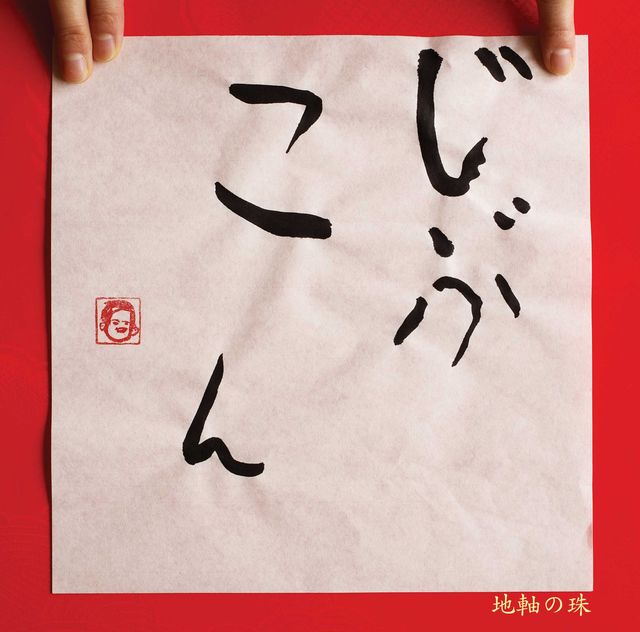 じぶ
こん
地軸の珠